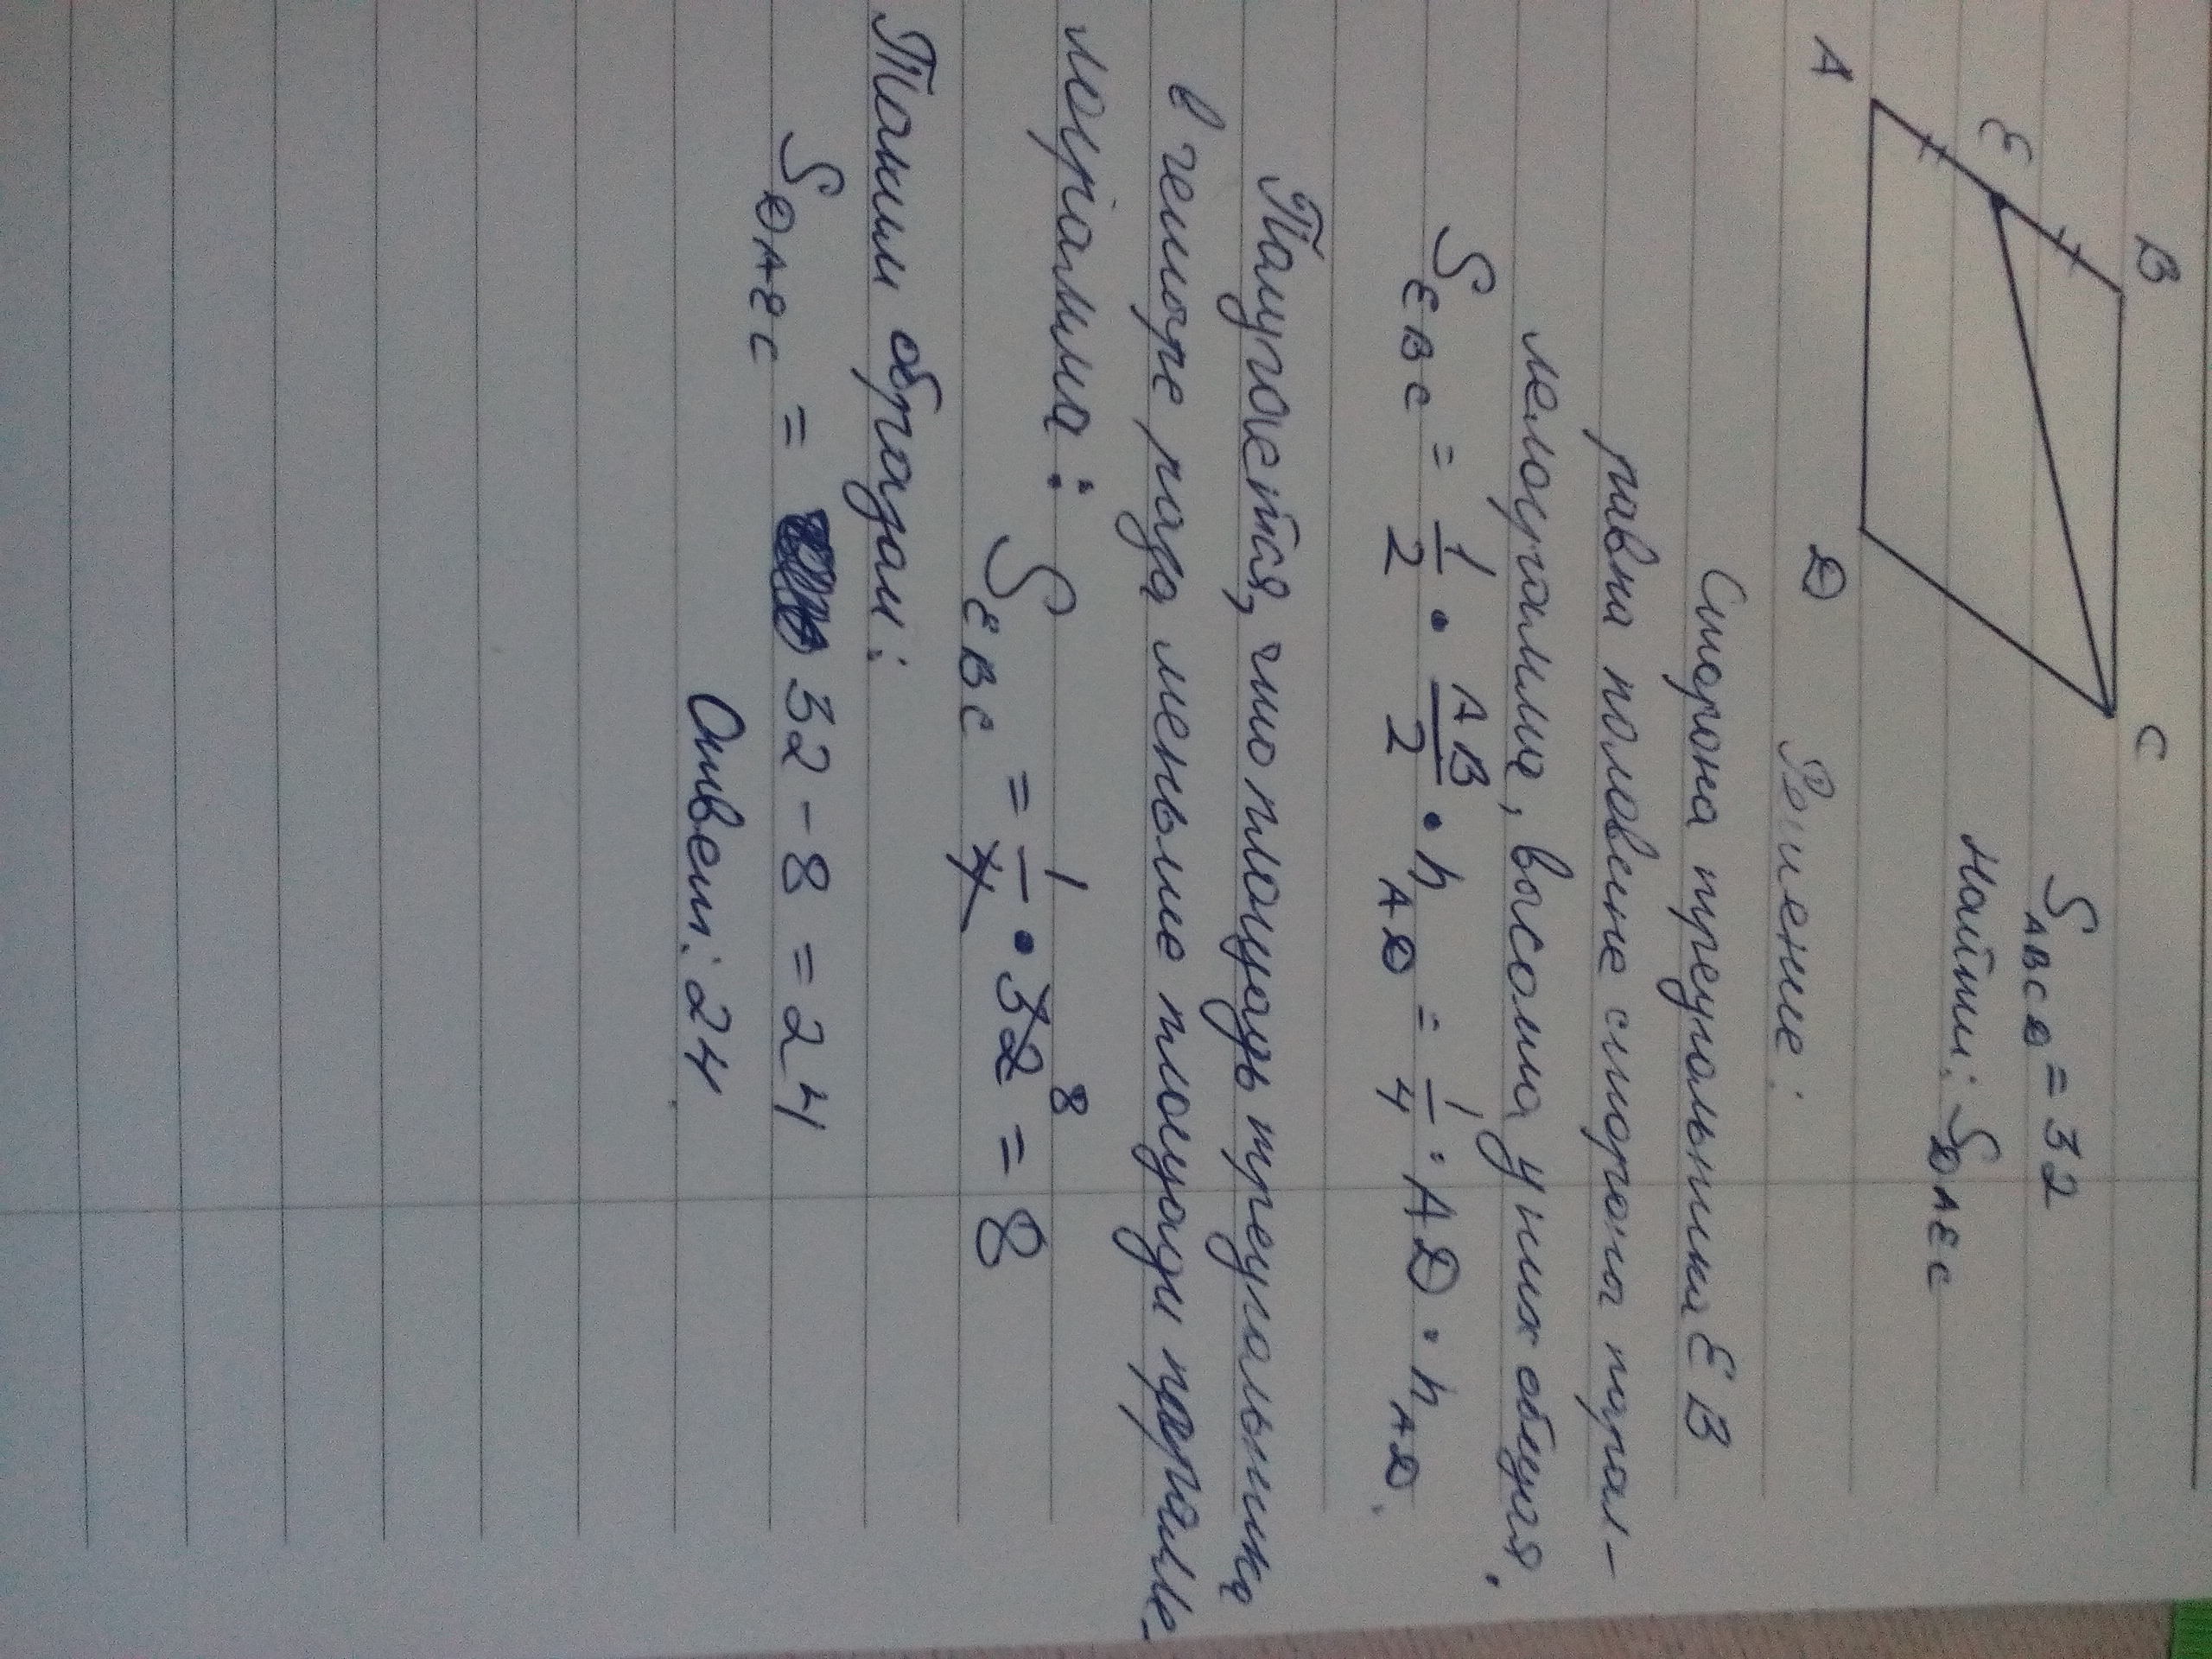 B
C
E
A
D
S ABCD = 32
Найти: S DAEC
Решение:
Сторона треугольника EB
равна половине стороны парал-
лелограмма, высота у них общая.
S EBC = 1/2 · AB/2 · h AD = 1/4 · AD · h AD.
Получается, что площадь треугольника
в четыре раза меньше площади паралле-
лограмма:
S EBC = 1/4 · 32 8 = 8
Таким образом:
S DAEC = 32 - 8 = 24
Ответ: 24.